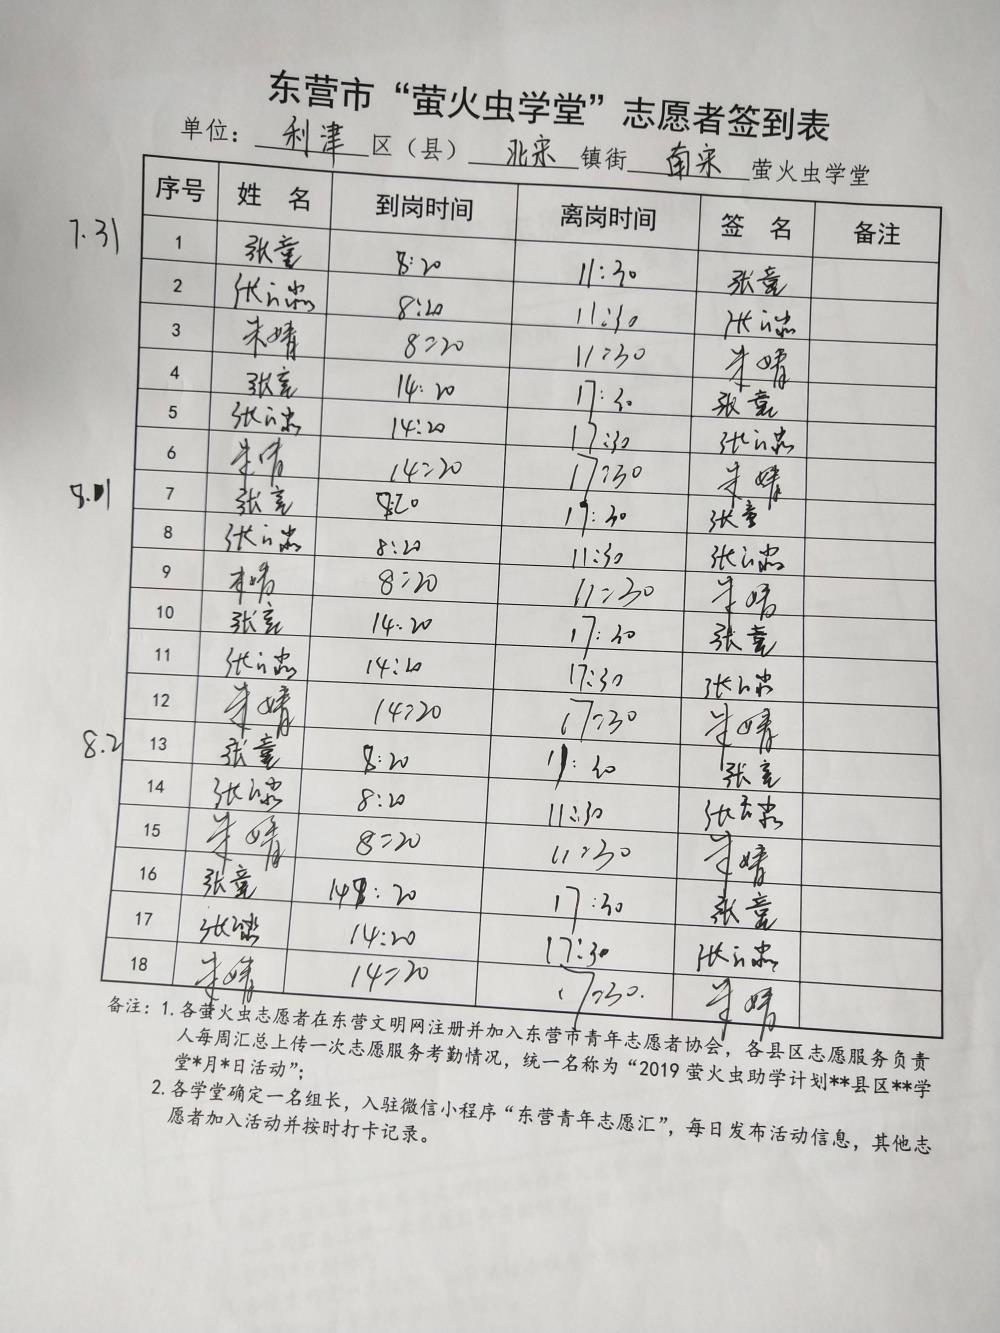 东营市“萤火虫学堂”志愿者签到表
单位：利津区（县）北宋镇街南宋萤火虫学堂
序号 姓 名 到岗时间 离岗时间 签 名 备注
7.31 1 张童 8:20 11:30 张童
2 张 8:20 11:30 张
3 朱婧 8:20 11:30 朱婧
4 张童 14:20 17:30 张童
5 张 14:20 17:30 张
6 朱婧 14:20 17:30 朱婧
8.01 7 张童 8:20 11:30 张童
8 张 8:20 11:30 张
9 朱婧 8:20 11:30 朱婧
10 张童 14:20 17:30 张童
11 张 14:20 17:30 张
12 朱婧 14:20 17:30 朱婧
8.2 13 张童 8:20 11:30 张童
14 张 8:20 11:30 张
15 朱婧 8:20 11:30 朱婧
16 张童 14:20 17:30 张童
17 张 14:20 17:30 张
18 朱婧 14:20 17:30. 朱婧
备注：1.各萤火虫志愿者在东营文明网注册并加入东营市青年志愿者协会，各县区志愿服务负责
人每周汇总上传一次志愿服务考勤情况，统一名称为“2019萤火虫助学计划**县区**学
堂*月*日活动”；
2.各学堂确定一名组长，入驻微信小程序“东营青年志愿汇”，每日发布活动信息，其他志
愿者加入活动并按时打卡记录。